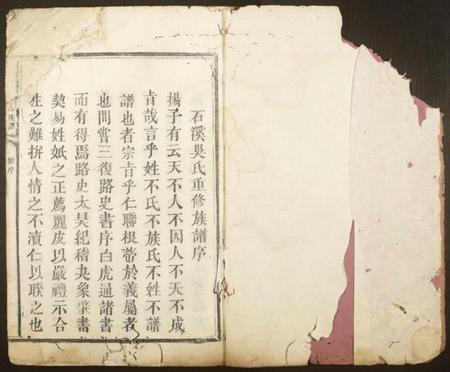 石溪吳氏重修族譜序
揚子有云天不人不因人不天不成
旨哉言乎姓不氏不族氏不姓不譜
譜也者宗旨乎仁聯根蒂於義屬者
也間嘗三復路史書序白虎通諸書
而有得焉路史太昊紀稽夬象肇書
契易姓妧之正薦麗皮以嚴禮示合
生之難拚人情之不瀆仁以聯之也
族譜
序